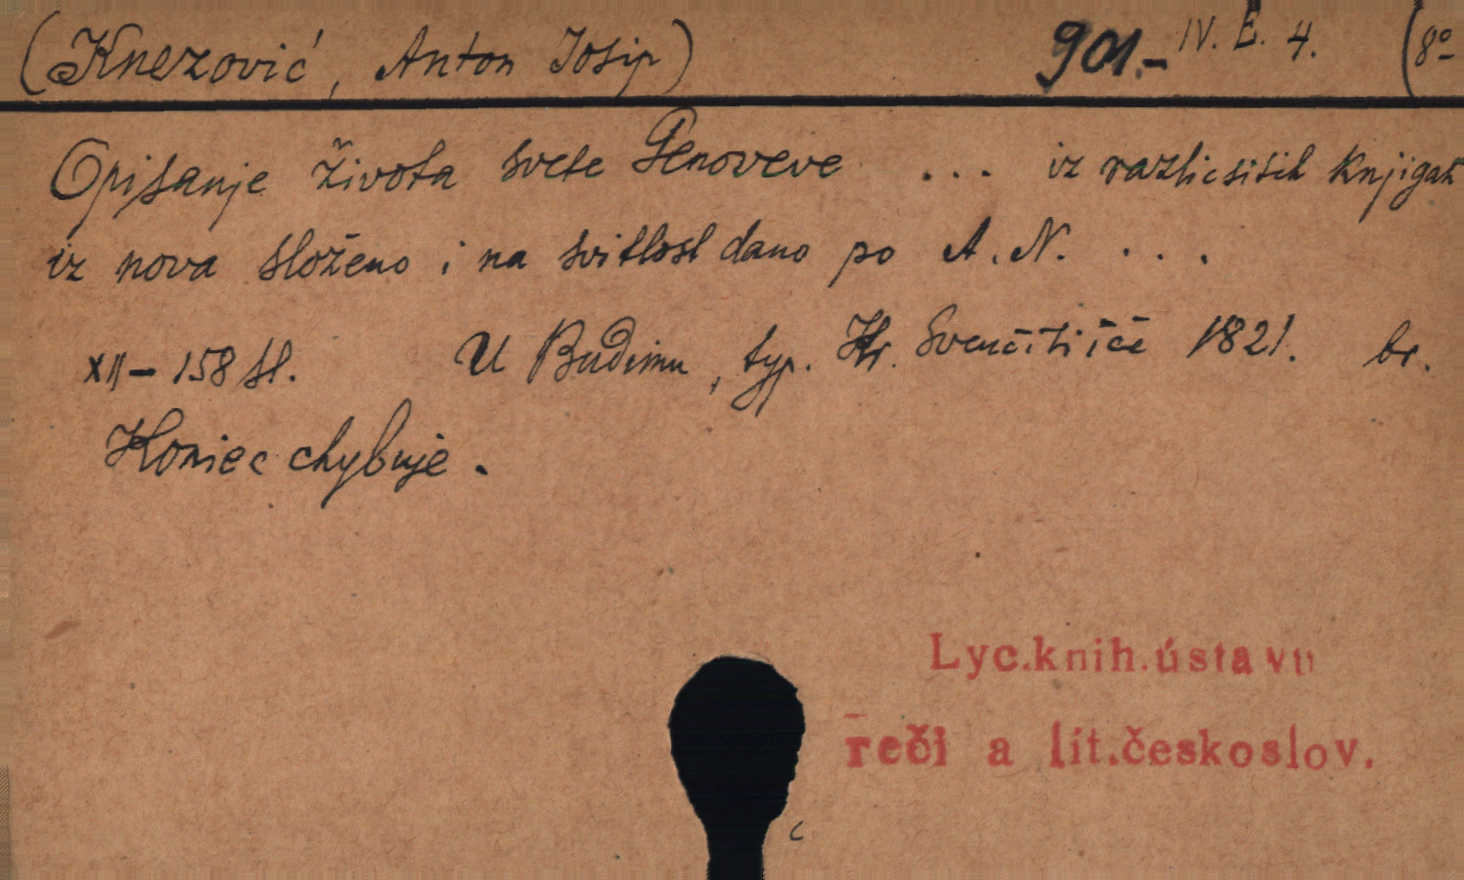 (Knezović, Anton Josip) 901.- IV. E. 4. (8º
Opisanje života svete Genoveve ... iz razlicsitih knjigah
iz nova složeno i na svitlost dano po A. N. ...
XII – 158 st. U Budimu, typ. Kr. 1821. br.
Koniec chybuje.
Lyc.knih.ústavu
reči a lit.českoslov.
c